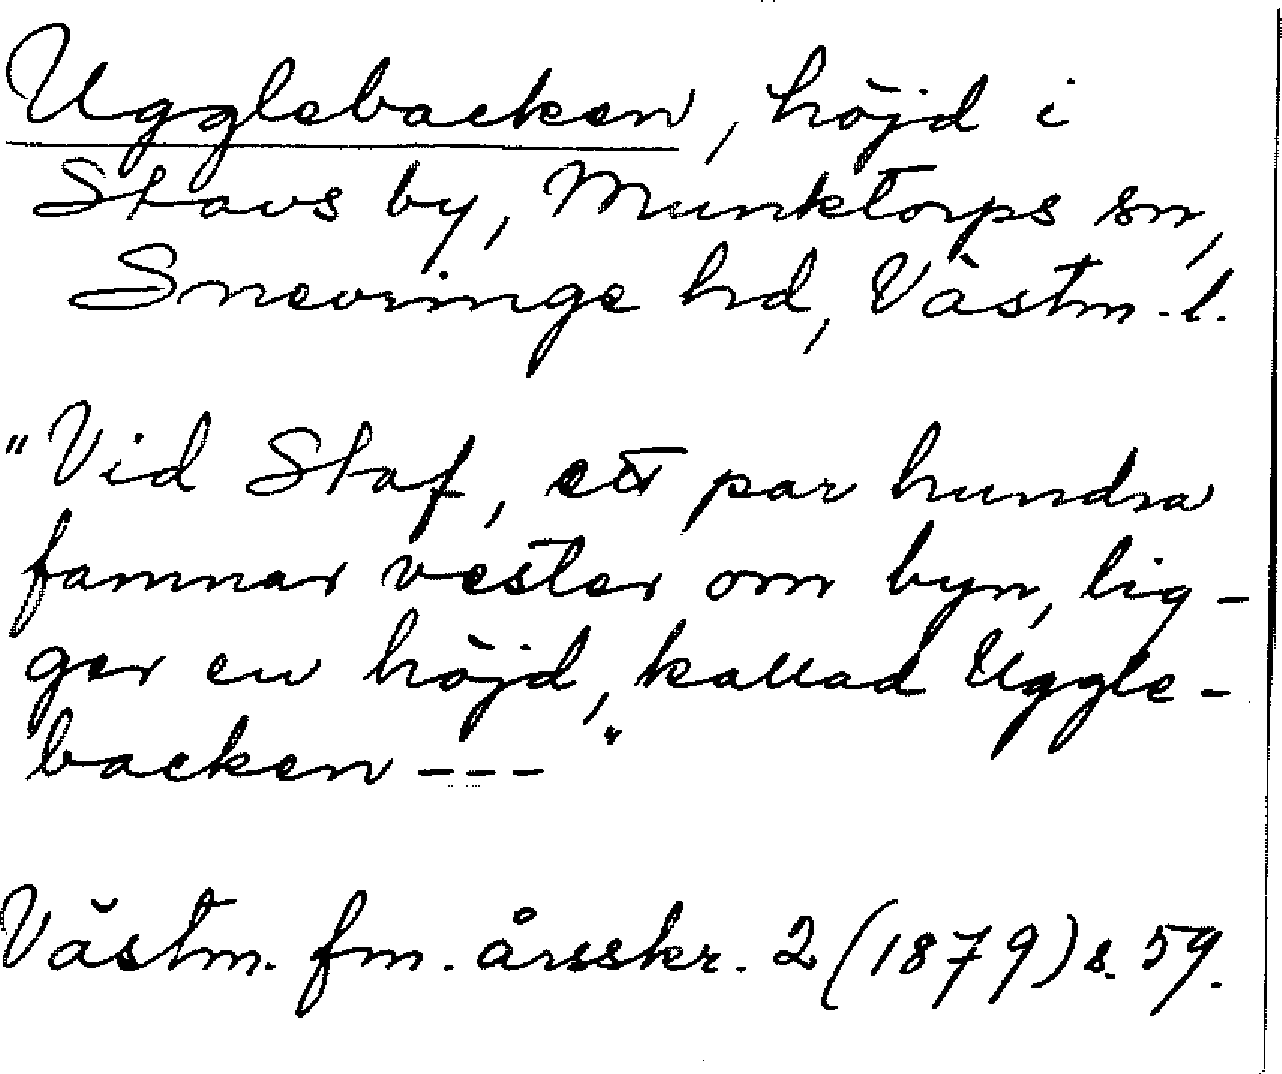 Ugglebacken, höjd i
Stavs by, Munktorps sn,
Snevringe hd, Västm. l.
"Vid Staf, ett par hundra
famnar vester om byn, lig-
ger en höjd, kallad Uggle-
backen ---"
Västm. fm. årsskr. 2 (1879) s. 59.